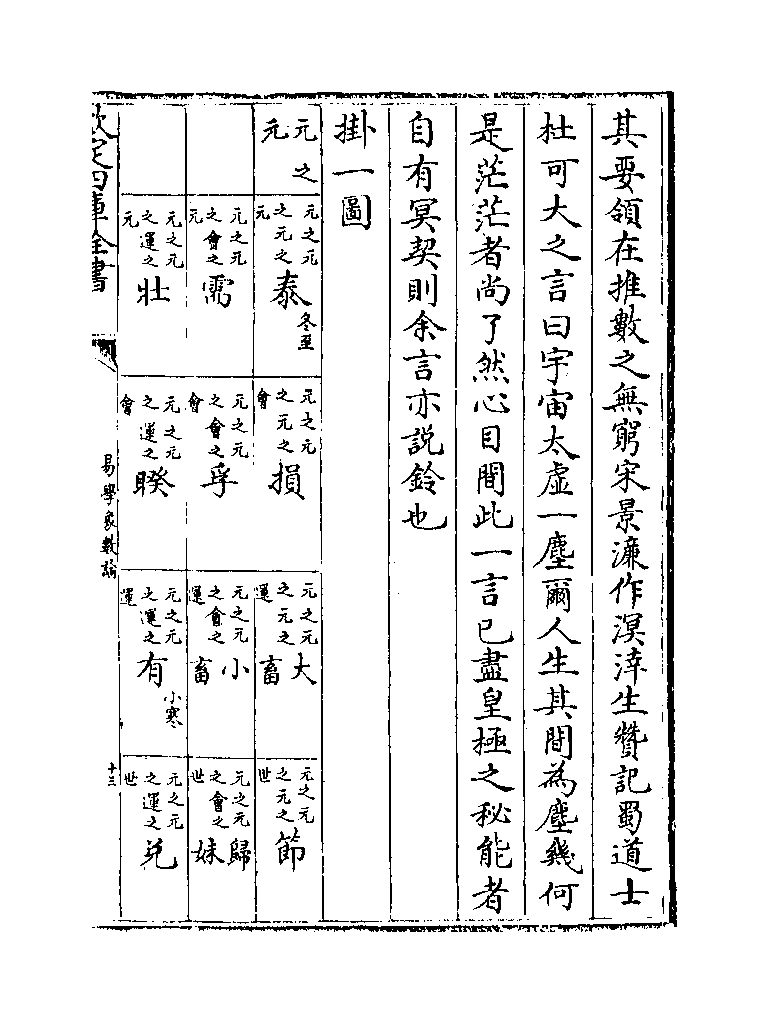 其要領在推數之無窮宋景濂作溟涬生贊記蜀道士
杜可大之言曰宇宙太虚一塵爾人生其間為塵幾何
是茫茫者尚了然心目間此一言已盡皇極之秘能者
自有冥契則余言亦説鈴也
掛一圖
元之元
元之元之元之元 泰 冬至
元之元之元之會 損
元之元之元之運 大畜
元之元之元之世 節
元之元之會之元 需
元之元之會之會 孚
元之元之會之運 小畜
元之元之會之世 歸妹
元之元之運之元 壯
元之元之運之會 睽
元之元之有運之運 有 小寒
元之元之運之世 兌
欽定四庫全書
易學象數論
十三